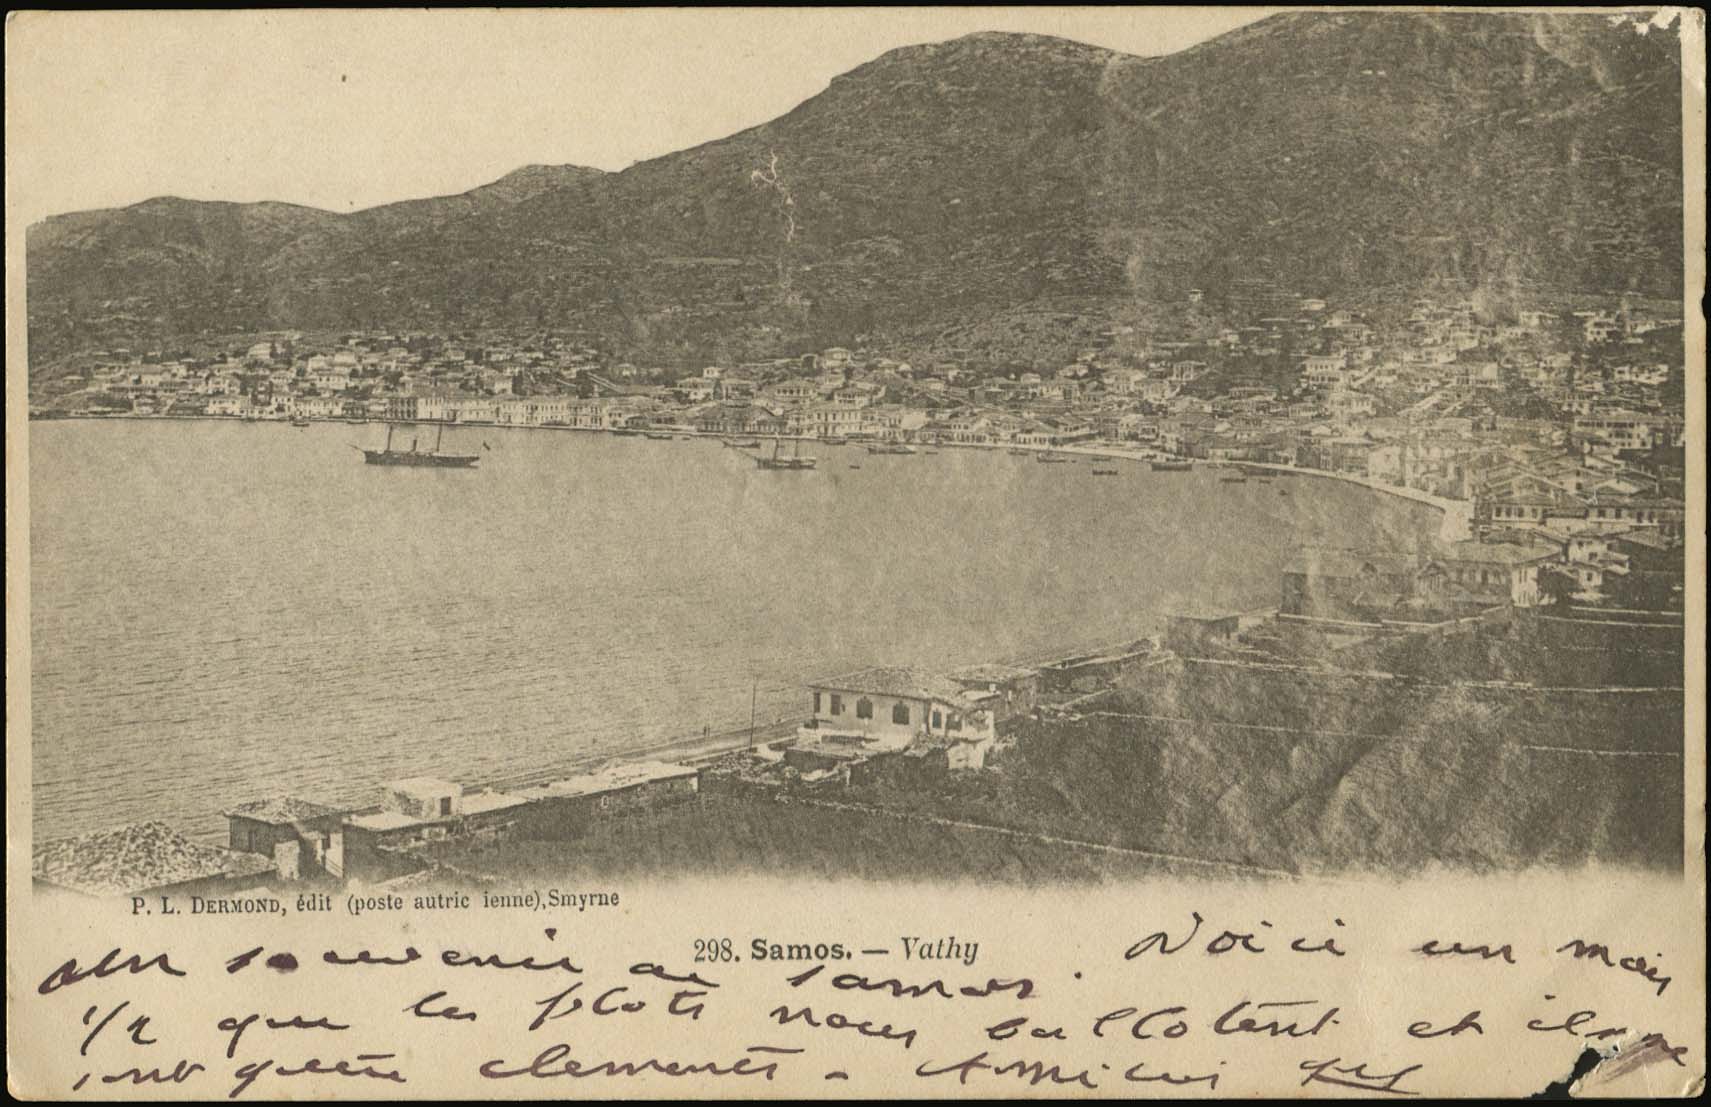 P. L. DERMOND, édit (poste autric ienne), Smyrne
298. Samos. — Vathy
Un souvenir de Samos. Voici un mois
1/2 que les flots nous ballotent et ils ne
sont guère clements - Amitiés